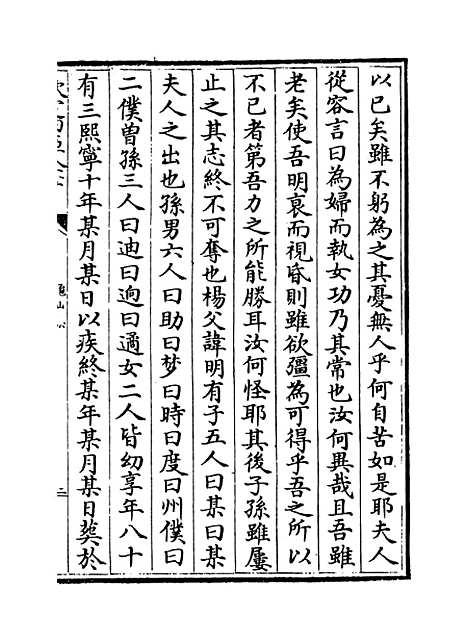 以已矣雖不躬為之其憂無人乎何自苦如是耶夫人
從容言曰為婦而執女功乃其常也汝何異哉且吾雖
老矣使吾明衰而視昏則雖欲彊為可得乎吾之所以
不已者第吾力之所能勝耳汝何怪耶其後子孫雖屢
止之其志終不可奪也楊父諱明有子五人曰某曰某
夫人之出也孫男六人曰助曰梦曰時曰度曰州僕曰
二僕曾孫三人曰迪曰逈曰適女二人皆幼享年八十
有三熙寧十年某月某日以疾終某年某月某日葬於
龜山集
三